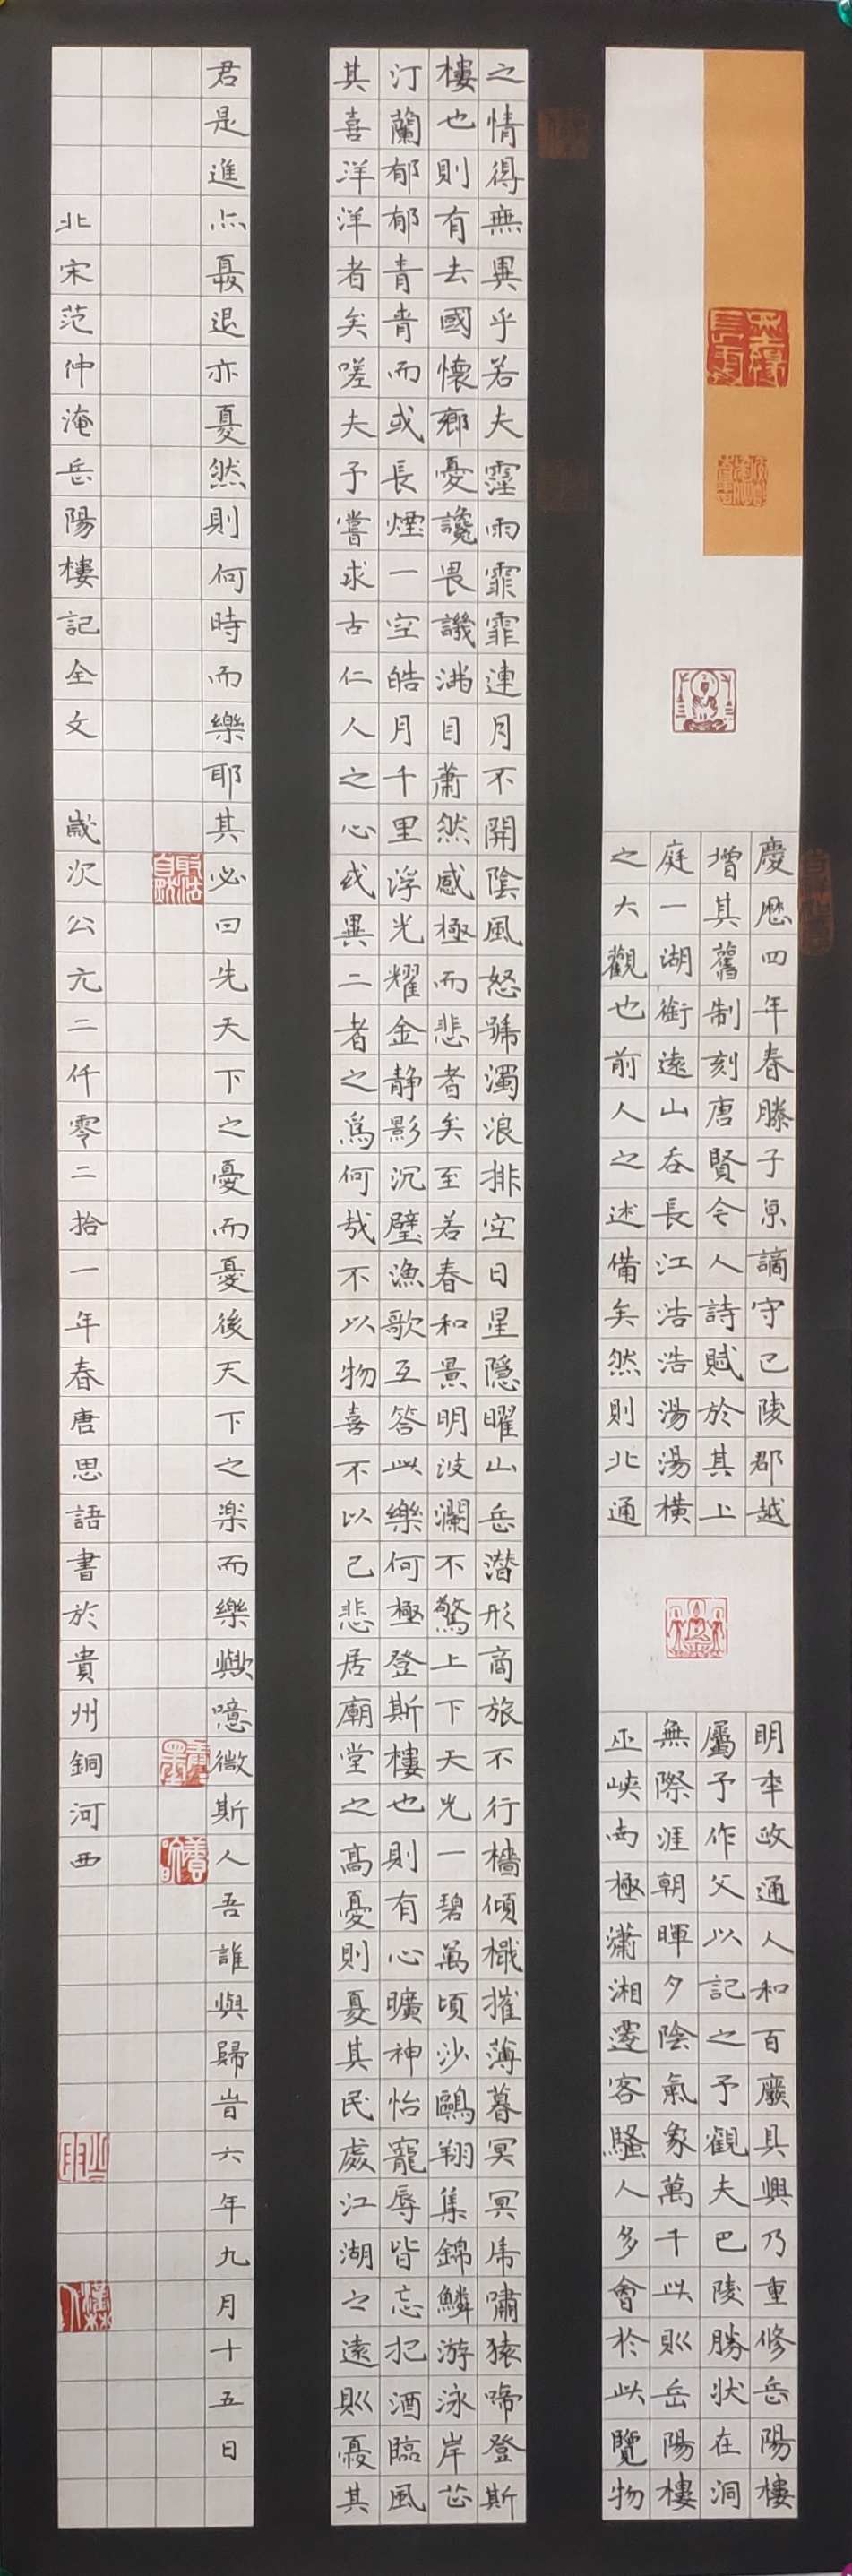 慶歷四年春滕子京謫守巴陵郡越明年政通人和百廢具興乃重修岳陽樓
增其舊制刻唐賢今人詩賦於其上屬予作文以記之予觀夫巴陵勝状在洞
庭一湖銜遠山吞長江浩浩湯湯橫無際涯朝暉夕陰氣象萬千此則岳陽樓
之大觀也前人之述備矣然則北通巫峽南極瀟湘遷客騷人多會於此覽物
之情得無異乎若夫霪雨霏霏連月不開陰風怒號濁浪排空日星隱曜山岳潛形商旅不行檣傾檝摧薄暮冥冥虎嘯猿啼登斯
樓也則有去國懷鄉憂讒畏譏滿目蕭然感極而悲者矣至若春和景明波瀾不驚上下天光一碧萬頃沙鷗翔集錦鱗游泳岸芷
汀蘭郁郁青青而或長煙一空皓月千里浮光耀金静影沉璧漁歌互答此樂何極登斯樓也則有心曠神怡寵辱皆忘把酒臨風
其喜洋洋者矣嗟夫予嘗求古仁人之心或異二者之為何哉不以物喜不以己悲居廟堂之高憂則憂其民處江湖之遠則憂其
君是進亦憂退亦憂然則何時而樂耶其必曰先天下之憂而憂後天下之楽而樂歟噫微斯人吾誰與歸旹六年九月十五日
北宋范仲淹岳陽樓記全文 歲次公元二仟零二拾一年春唐思語書於貴州銅河西